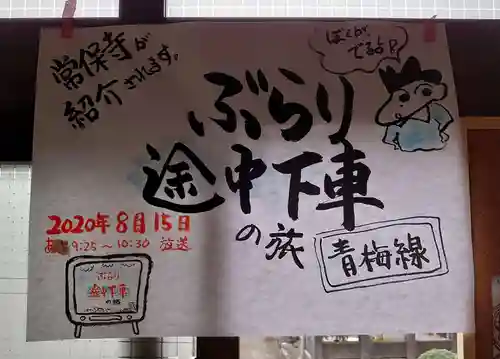 常保寺が
紹介されます。
ぼくが
でるよ!
ぶらり
途中下車
の旅
青梅線
2020年8月15日
あさ9:25~10:30 放送
ぶらり
途中下車
の旅